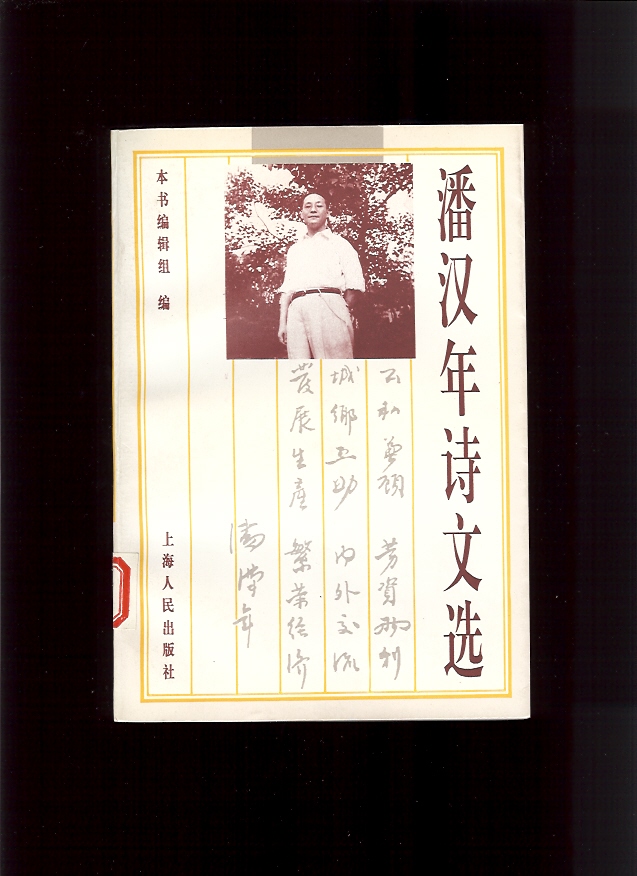 潘汉年诗文选
公私兼顾 劳資两利
城鄉互助 内外交流
發展生產 繁荣经济
潘漢年
本书编辑组 编
上海人民出版社